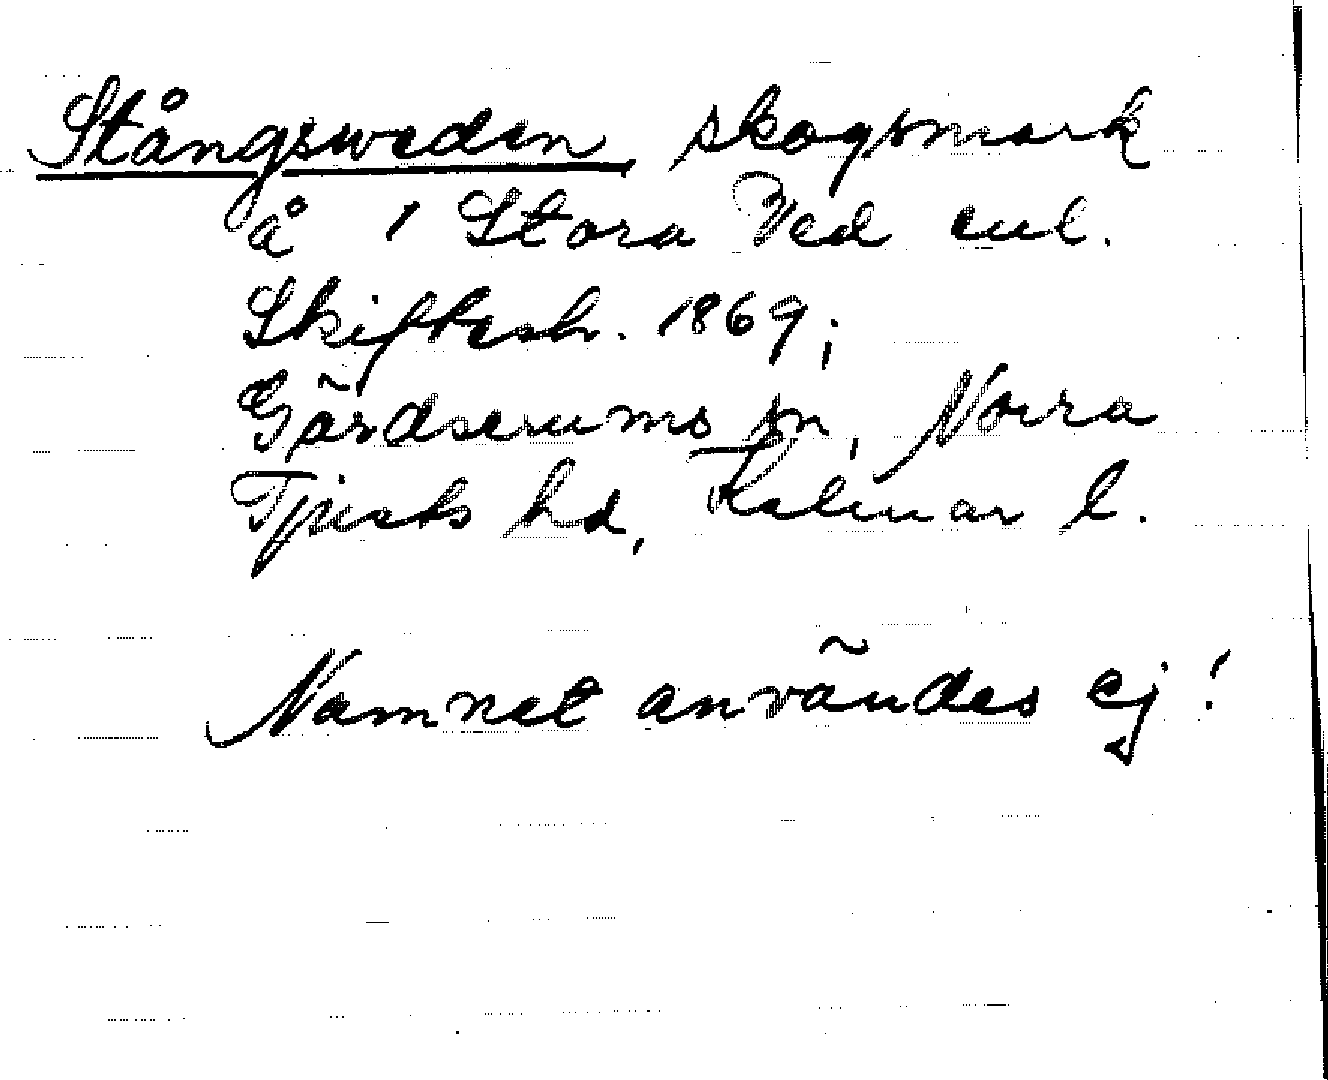 Stångsweden skogsmark
å 1 Stora Ved enl.
Skiftesh. 1869;
Gärdserums sn, Norra
Tjusts hd, Kalmar l.
Namnet användes ej!